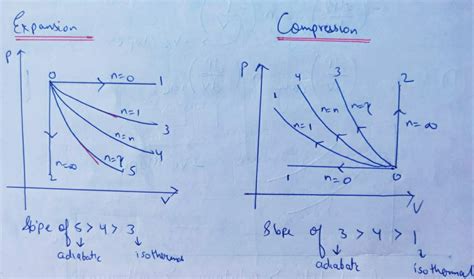 Expansion
P
0
n=0
1
n=1
3
n=n
4
n=γ
5
n=∞
2
V
Slope of 5 > 4 > 3
adiabatic
isothermal
Compression
P
2
3
4
1
n=γ
n=n
n=1
n=∞
1
n=0
0
V
Slope of 3 > 4 > 1
adiabatic
isothermal